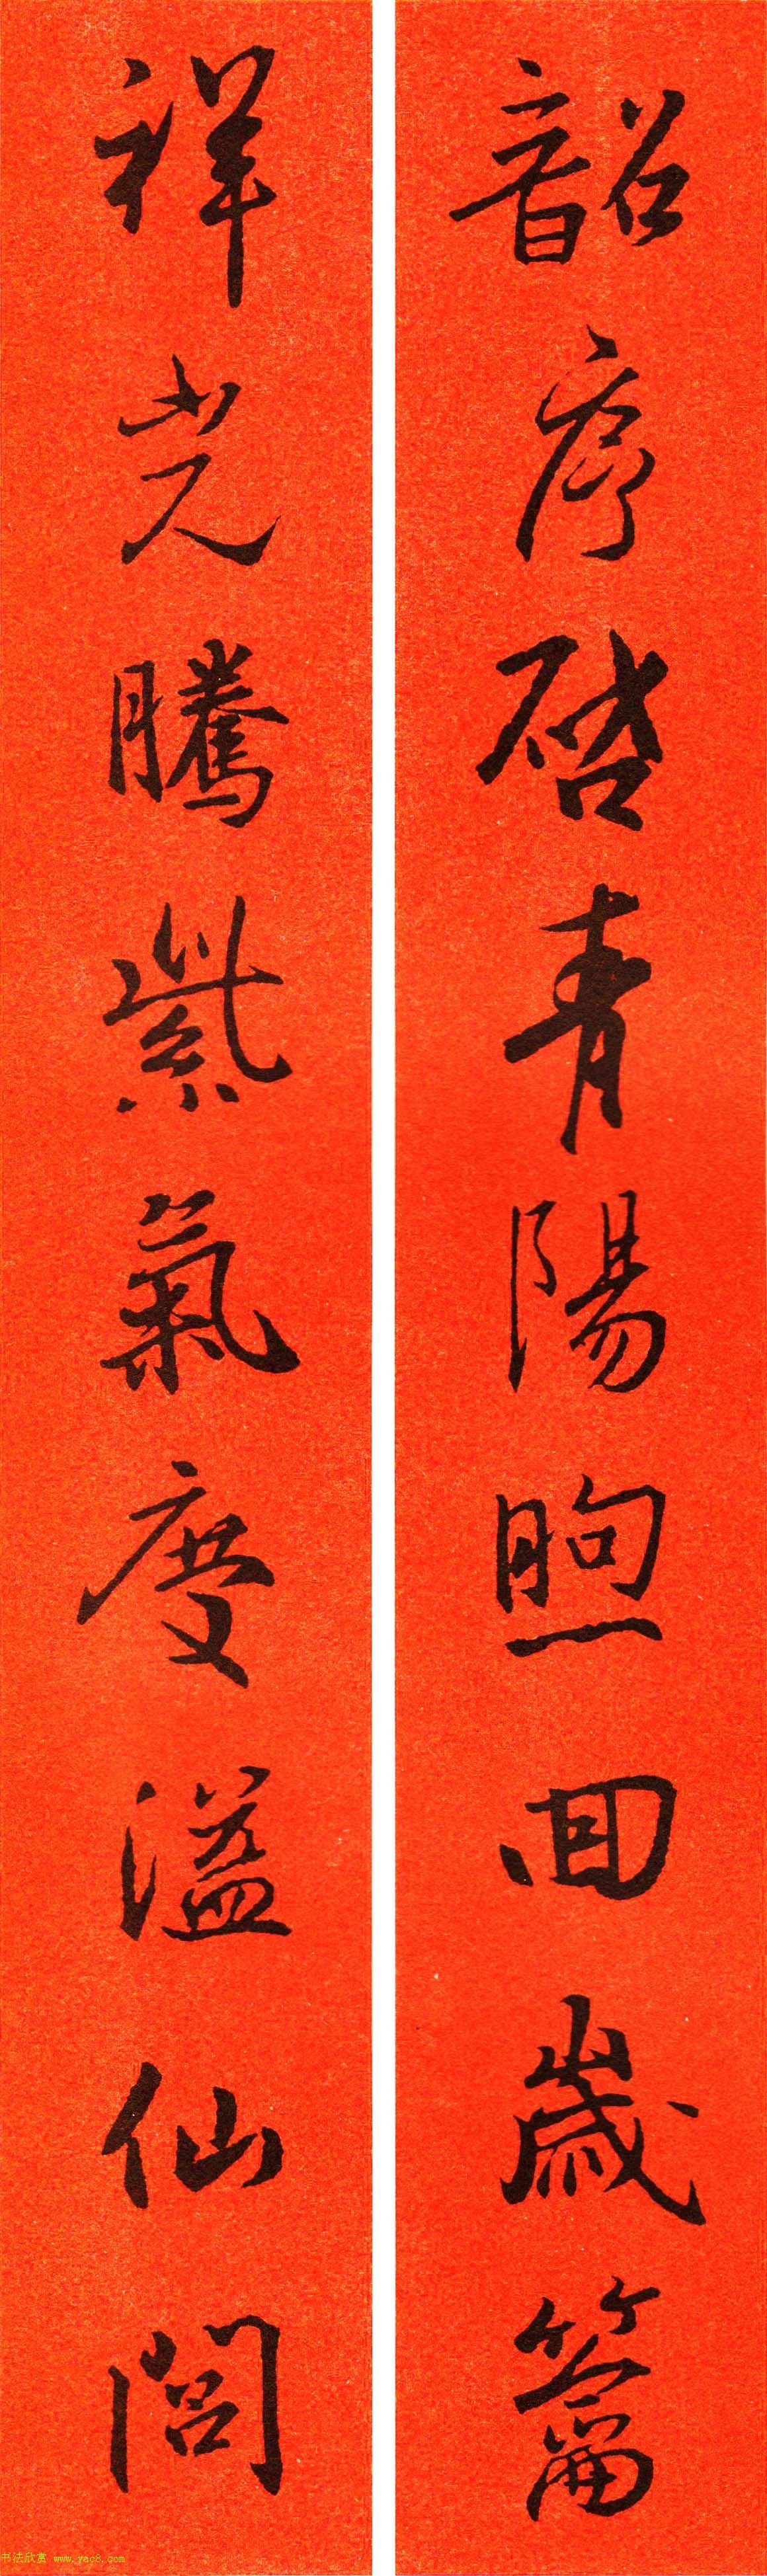 韶序啓青陽煦回歲籥
祥光騰紫氣慶溢仙閭
书法欣赏 www.yac8.com